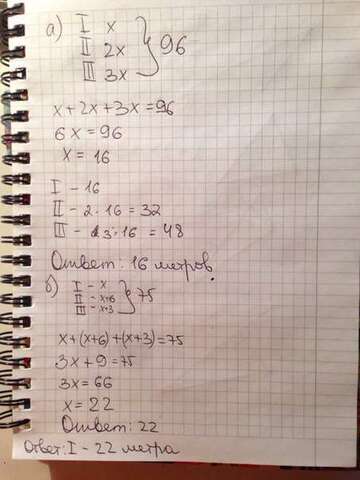 а) I x
II 2x } 96
III 3x
x+2x+3x=96
6x=96
x=16
I - 16
II - 2·16=32
III - 3·16=48
Ответ: 16 метров.
б) I - x
II - x+6 } 75
III - x+3
x+(x+6)+(x+3)=75
3x+9=75
3x=66
x=22
Ответ: 22
Ответ: I - 22 метра